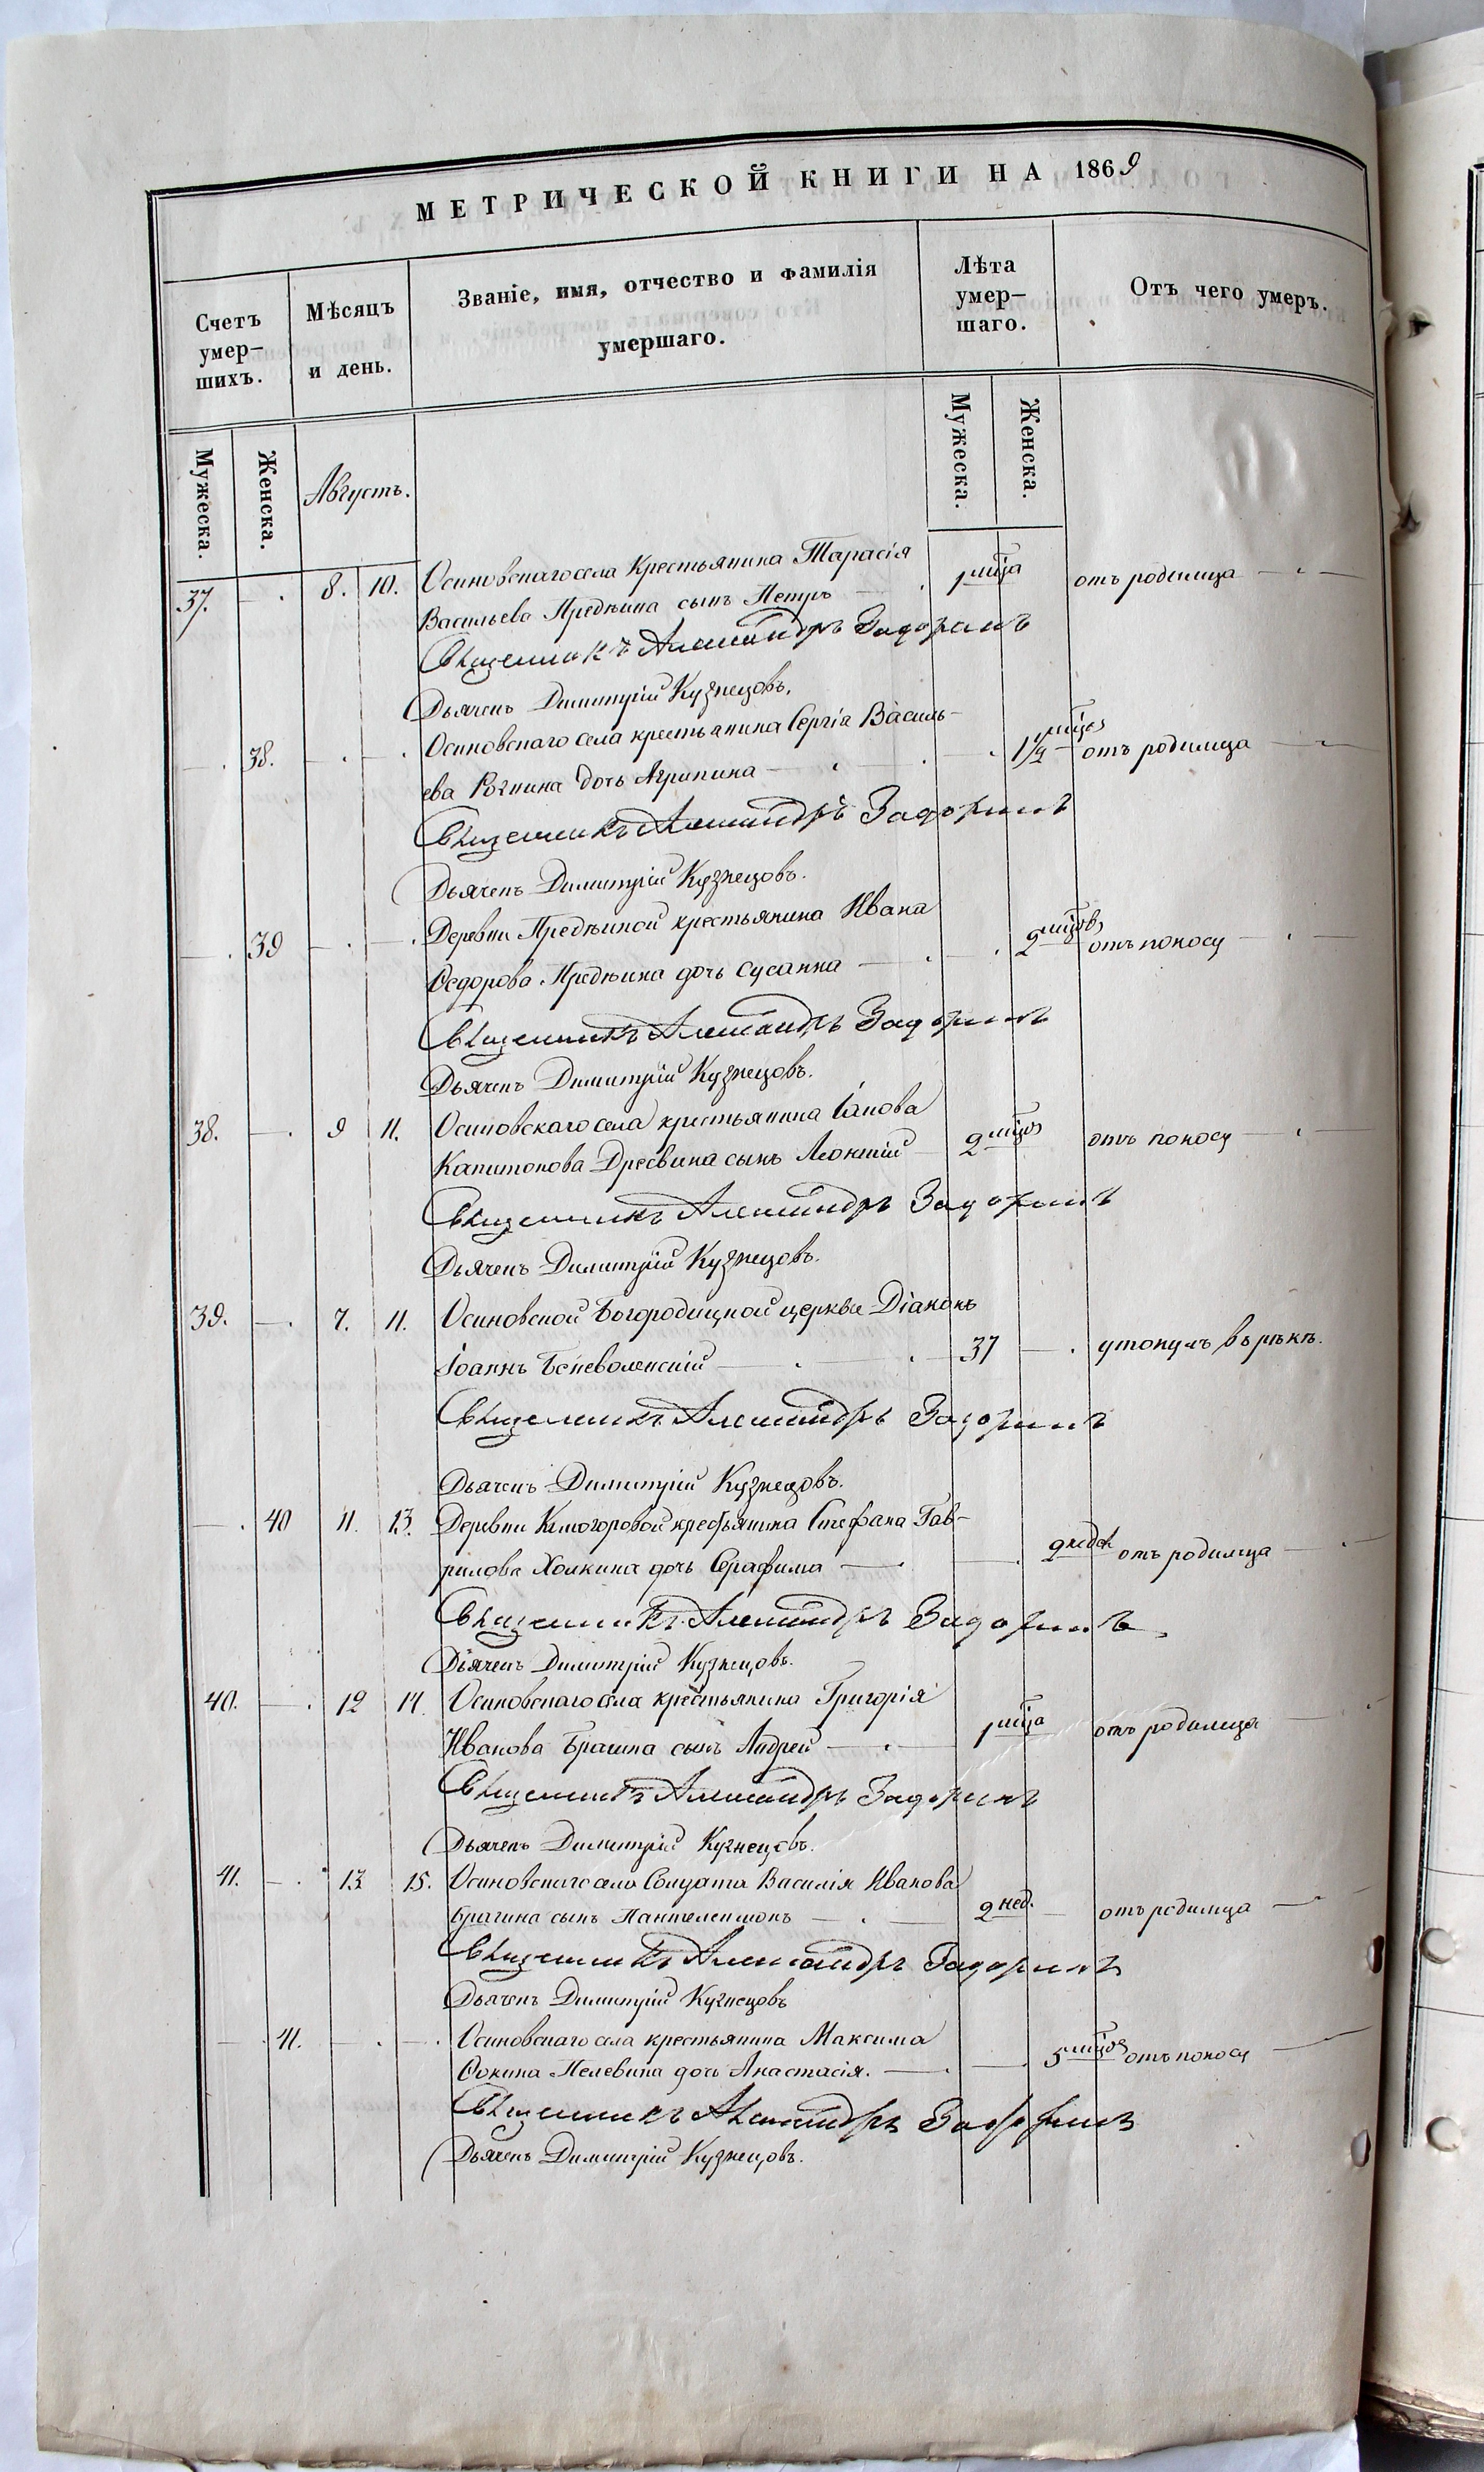 МЕТРИЧЕСКОЙ КНИГИ НА 1869
Счетъ умер– шихъ.
Мѣсяцъ и день.
Званіе, имя, отчество и фамилія
умершаго.
Лѣта умер– шаго.
Отъ чего умеръ.
Мужеска. Женска.
Августъ.
Мужеска. Женска.
37. — . 8. 10. Осиновскаго села Крестьянина Тарасія 1 мца отъ родимца
Васильева Предѣина сынъ Петръ
Священникъ Александръ Задоринъ
Дьячекъ Димитрій Кузнецовъ.
— . 38. Осиновскаго села крестьянина Сергія Василь– 1½ мцоз отъ родимца
ева Рогнина дочь Агрипина
Священникъ Александръ Задоринъ
Дьячекъ Димитрій Кузнецовъ.
— . 39 Деревни Предѣиной крестьянина Ивана 2 мцовъ отъ поносу
Ѳедорова Предѣина дочь Сусанна
Священникъ Александръ Задоринъ
Дьячекъ Димитрій Кузнецовъ.
38. — . 9 11. Осиновскаго села крестьянина Іакова
Капитонова Дресвина сынъ Леонтій 2 отъ поносу
Священникъ Александръ Задоринъ
Дьячекъ Димитрій Кузнецовъ.
39. — . 7. 11. Осиновской Богородицкой церкви Діаконъ
Іоаннъ Беневоленскій 37 — . утонулъ въ рѣкѣ.
Священникъ Александръ Задоринъ
Дьячекъ Димитрій Кузнецовъ.
— . 40 11. 13. Деревни крестьянина Стефана Гав–
рилова Холкина дочь Серафима 9 недѣл отъ родимца
Священникъ Александръ Задоринъ
Дьячекъ Димитрій Кузнецовъ.
40. — . 12 14. Осиновскаго села крестьянина Григорія
Иванова сынъ Андрей 1 мца отъ родимца
Священникъ Александръ Задоринъ
Дьячекъ Димитрій Кузнецовъ.
41. — . 13 15. Осиновскаго села Солдата Василія Иванова
Брагина сынъ Пантелеимонъ 2 нед. отъ родимца
Священникъ Александръ Задоринъ
Дьячекъ Димитрій Кузнецовъ
— . 41. Осиновскаго села крестьянина Максима
Фокина Пелевина дочь Анастасія. 5 отъ поносу
Священникъ Александръ Задоринъ
Дьячекъ Димитрій Кузнецовъ.